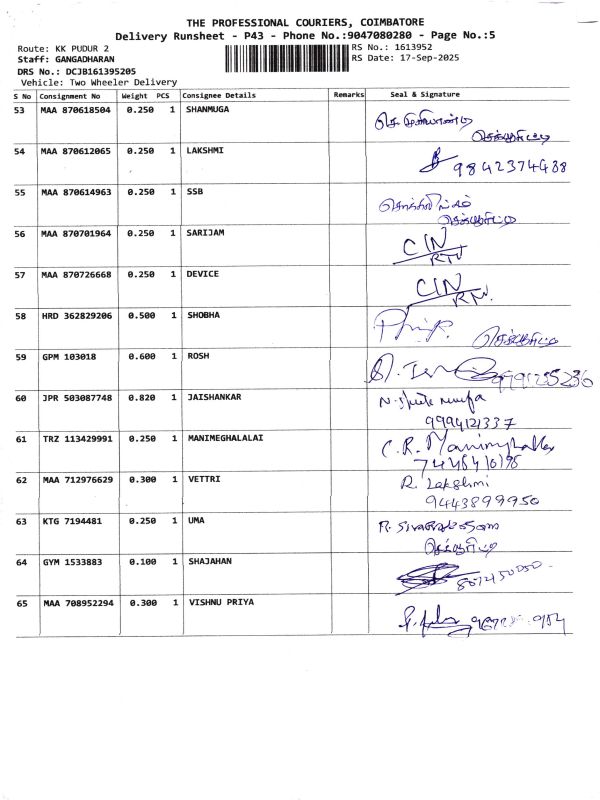 THE PROFESSIONAL COURIERS, COIMBATORE
Delivery Runsheet - P43 - Phone No.:9047080280 - Page No.:5
Route: KK PUDUR 2 RS No.: 1613952
Staff: GANGADHARAN RS Date: 17-Sep-2025
DRS No.: DCJB161395205
Vehicle: Two Wheeler Delivery
S No Consignment No Weight PCS Consignee Details Remarks Seal & Signature
53 MAA 870618504 0.250 1 SHANMUGA
செக்யூரிட்டி
54 MAA 870612065 0.250 1 LAKSHMI
9842374438
55 MAA 870614963 0.250 1 SSB
செக்யூரிட்டி
56 MAA 870701964 0.250 1 SARIJAM CIN
RTN
57 MAA 870726668 0.250 1 DEVICE CIN
RTN.
58 HRD 362829206 0.500 1 SHOBHA
செக்யூரிட்டி
59 GPM 103018 0.600 1 ROSH
60 JPR 503087748 0.820 1 JAISHANKAR
9994121337
61 TRZ 113429991 0.250 1 MANIMEGHALALAI C.R.
62 MAA 712976629 0.300 1 VETTRI R. Lakshmi
9443899950
63 KTG 7194481 0.250 1 UMA
செக்யூரிட்டி
64 GYM 1533883 0.100 1 SHAJAHAN
65 MAA 708952294 0.300 1 VISHNU PRIYA